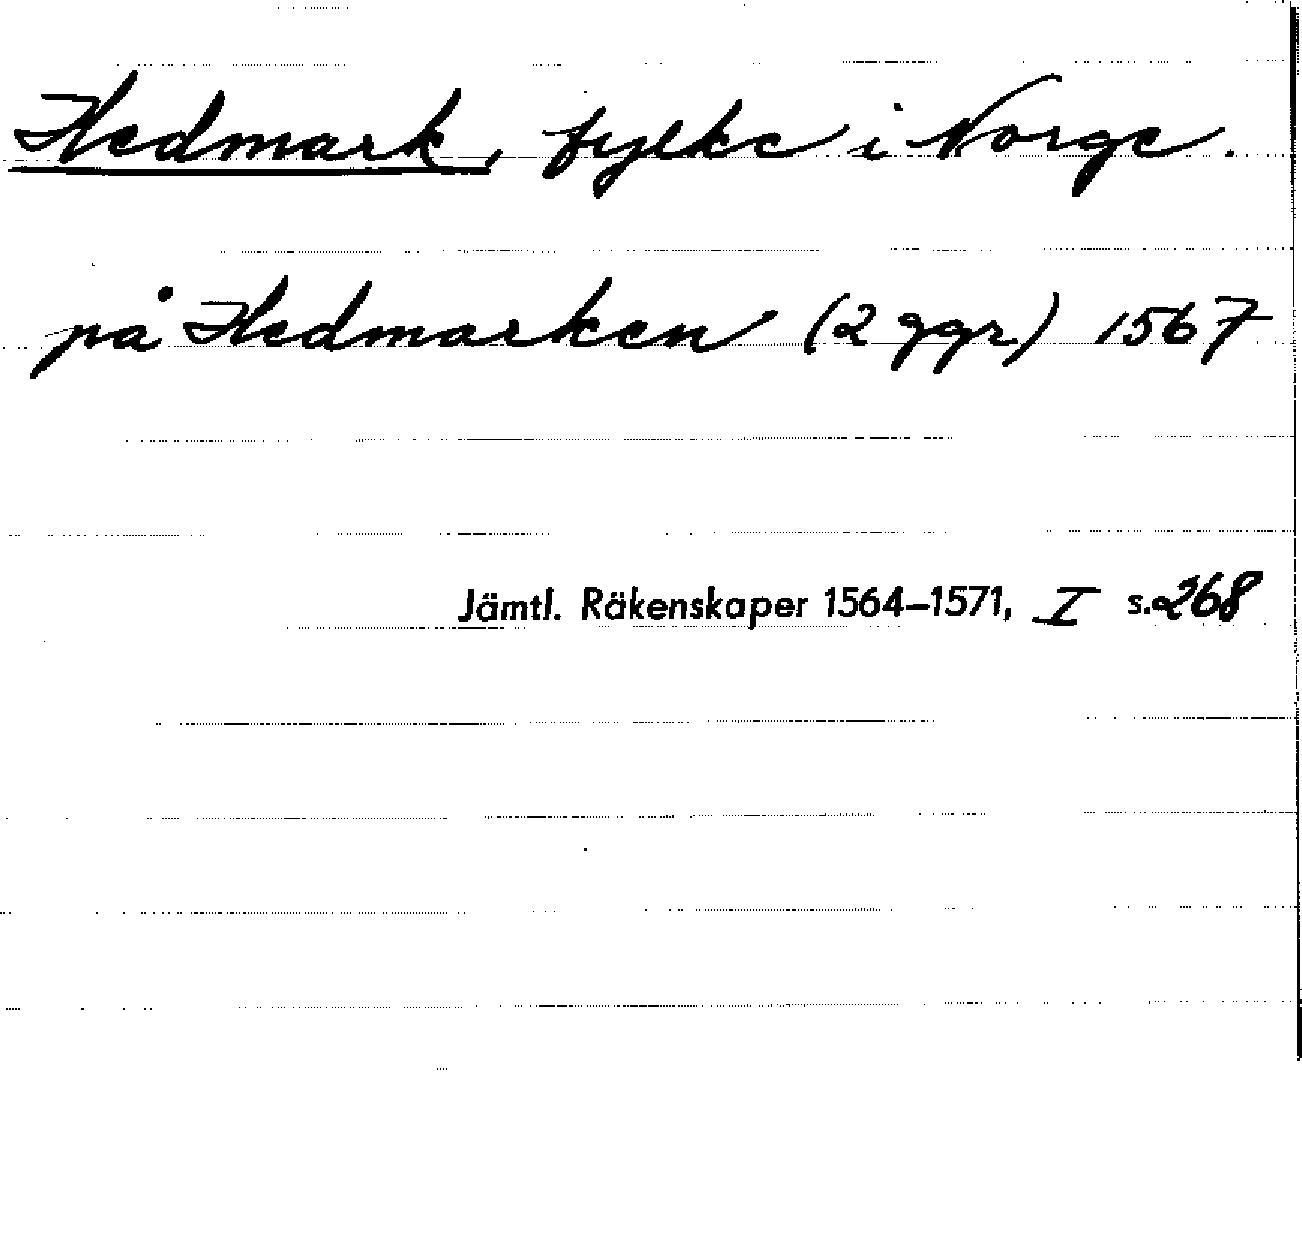 Hedmark, fylke i Norge.
på Hedmarken (2 ggr.) 1567
Jämtl. Räkenskaper 1564–1571, I s. 268